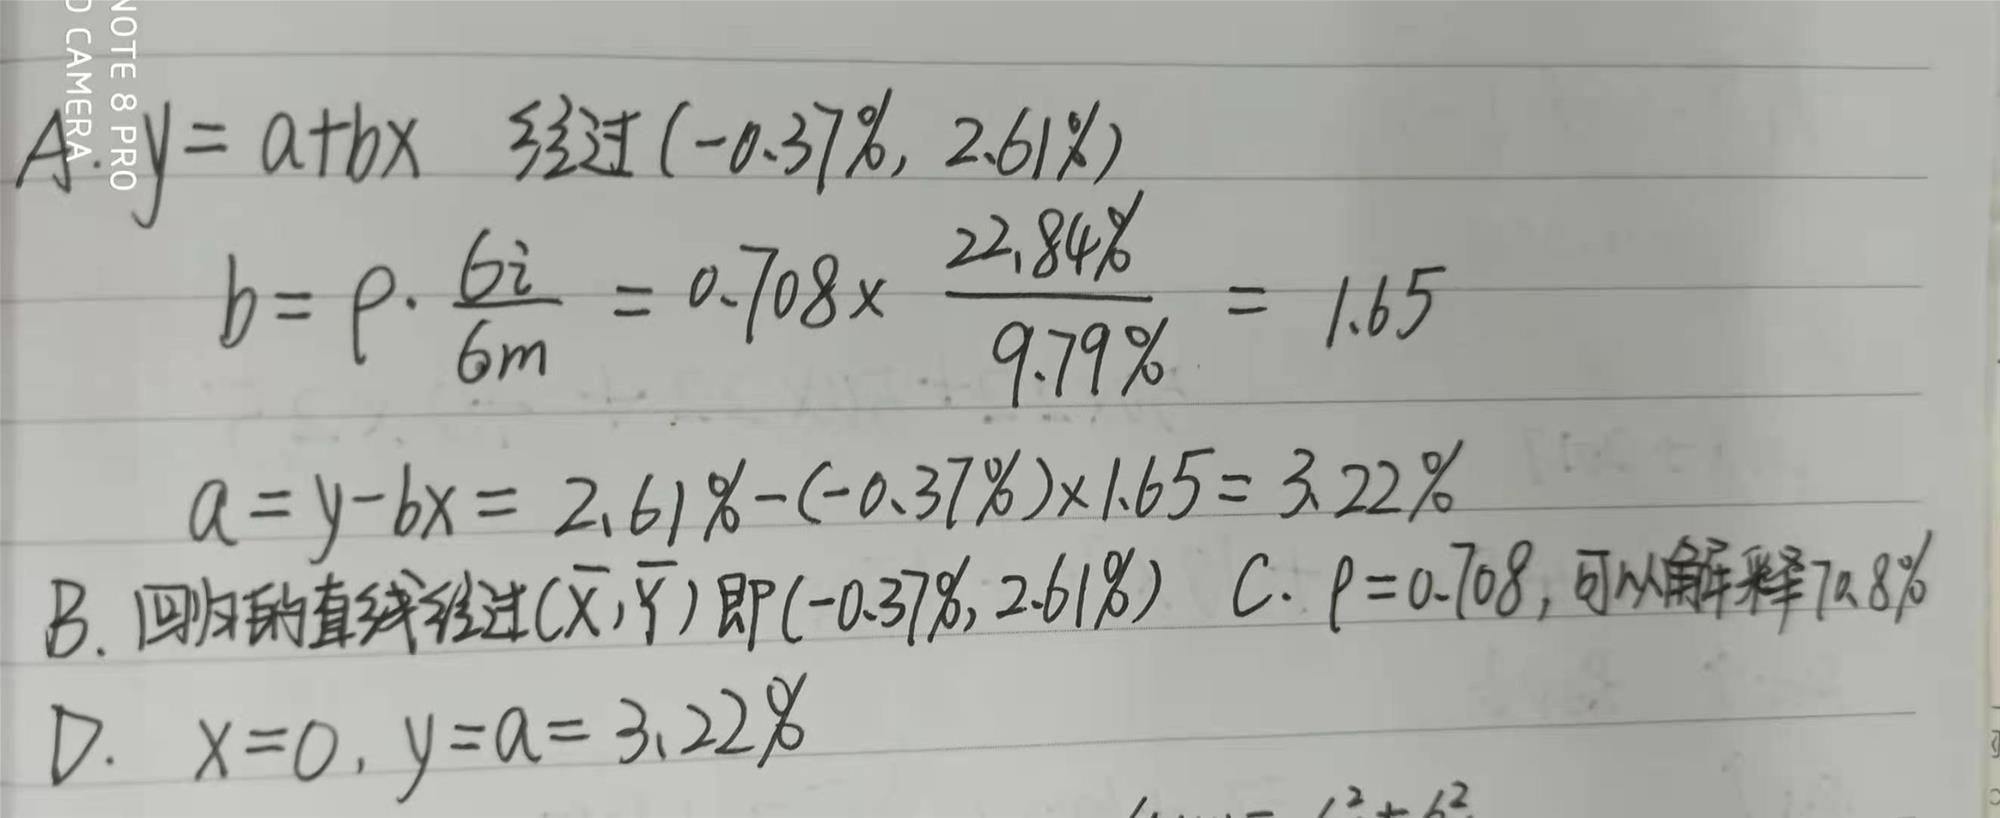 NOTE 8 PRO
CAMERA
A. y = a+bx 经过(-0.37%, 2.61%)
b = ρ· 6i/6m = 0.708× 22.84%/9.79% = 1.65
a = y-bx = 2.61%-(-0.37%)×1.65 = 3.22%
B. 回归的直线经过(X̄, Ȳ) 即(-0.37%, 2.61%) C. ρ=0.708, 可以解释70.8%
D. x=0, y=a=3.22%